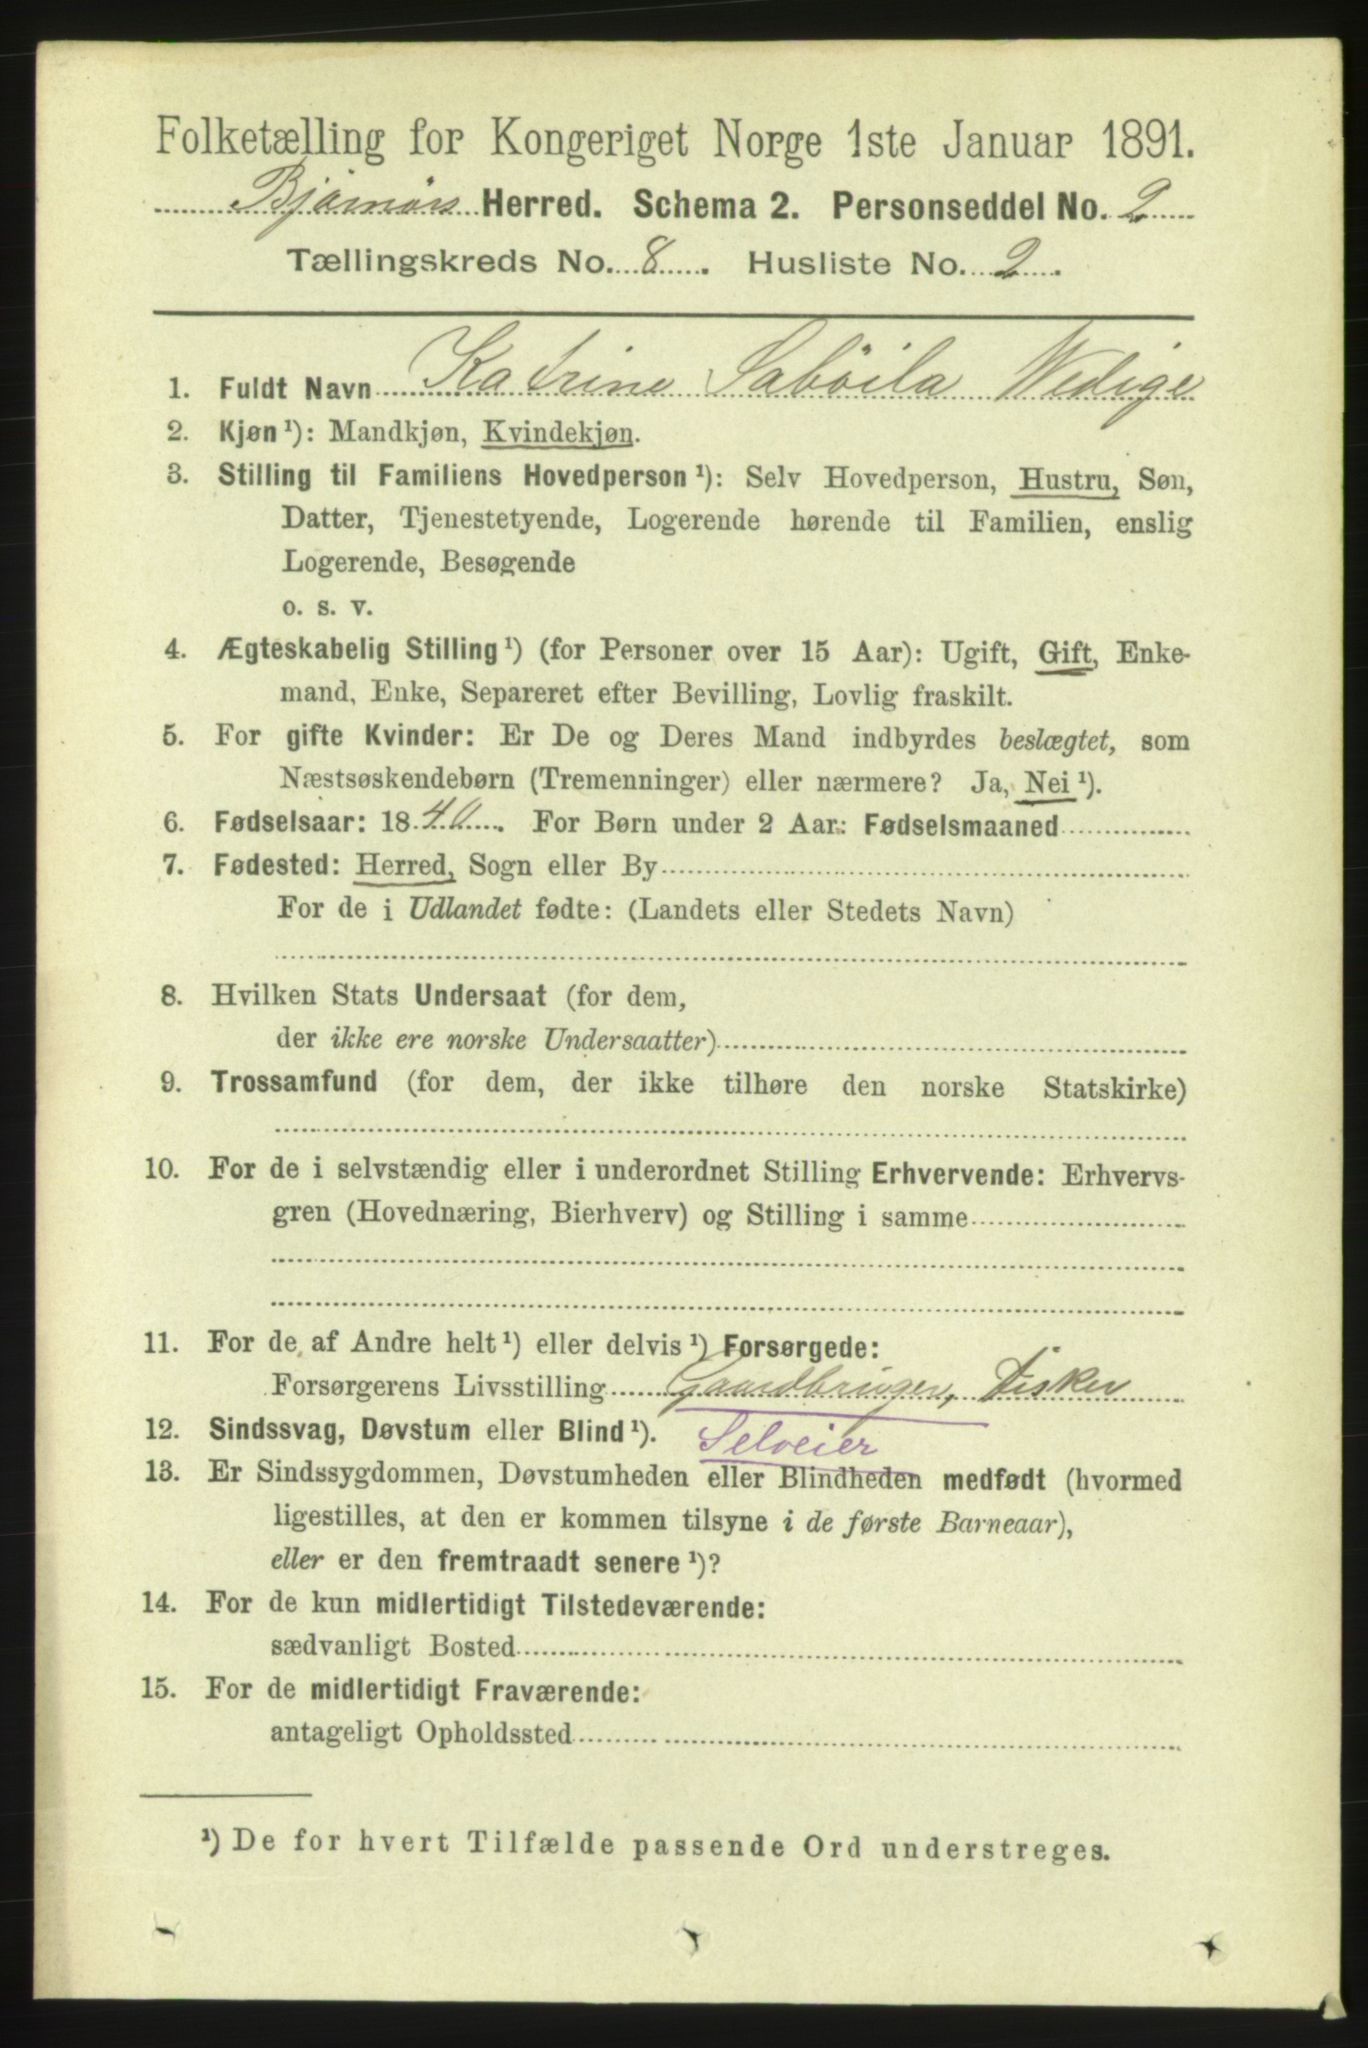 Folketælling for Kongeriget Norge 1ste Januar 1891.
Bjørnørs Herred. Schema 2. Personseddel No. 2
Tællingskreds No. 8. Husliste No. 2.
1. Fuldt Navn Katrine Saböila Wedige
2. Kjøn ¹): Mandkjøn, Kvindekjøn.
3. Stilling til Familiens Hovedperson ¹): Selv Hovedperson, Hustru, Søn,
Datter, Tjenestetyende, Logerende hørende til Familien, enslig
Logerende, Besøgende
o. s. v.
4. Ægteskabelig Stilling ¹) (for Personer over 15 Aar): Ugift, Gift, Enke-
mand, Enke, Separeret efter Bevilling, Lovlig fraskilt.
5. For gifte Kvinder: Er De og Deres Mand indbyrdes beslægtet, som
Næstsøskendebørn (Tremenninger) eller nærmere? Ja, Nei ¹).
6. Fødselsaar: 1840. For Børn under 2 Aar: Fødselsmaaned
7. Fødested: Herred, Sogn eller By
For de i Udlandet fødte: (Landets eller Stedets Navn)
8. Hvilken Stats Undersaat (for dem,
der ikke ere norske Undersaatter)
9. Trossamfund (for dem, der ikke tilhøre den norske Statskirke)
10. For de i selvstændig eller i underordnet Stilling Erhvervende: Erhvervs-
gren (Hovednæring, Bierhverv) og Stilling i samme
11. For de af Andre helt ¹) eller delvis ¹) Forsørgede:
Forsørgerens Livsstilling Gaardbruger, Fisker
12. Sindssvag, Døvstum eller Blind ¹). Selveier
13. Er Sindssygdommen, Døvstumheden eller Blindheden medfødt (hvormed
ligestilles, at den er kommen tilsyne i de første Barneaar),
eller er den fremtraadt senere ¹)?
14. For de kun midlertidigt Tilstedeværende:
sædvanligt Bosted
15. For de midlertidigt Fraværende:
antageligt Opholdssted
¹) De for hvert Tilfælde passende Ord understreges.